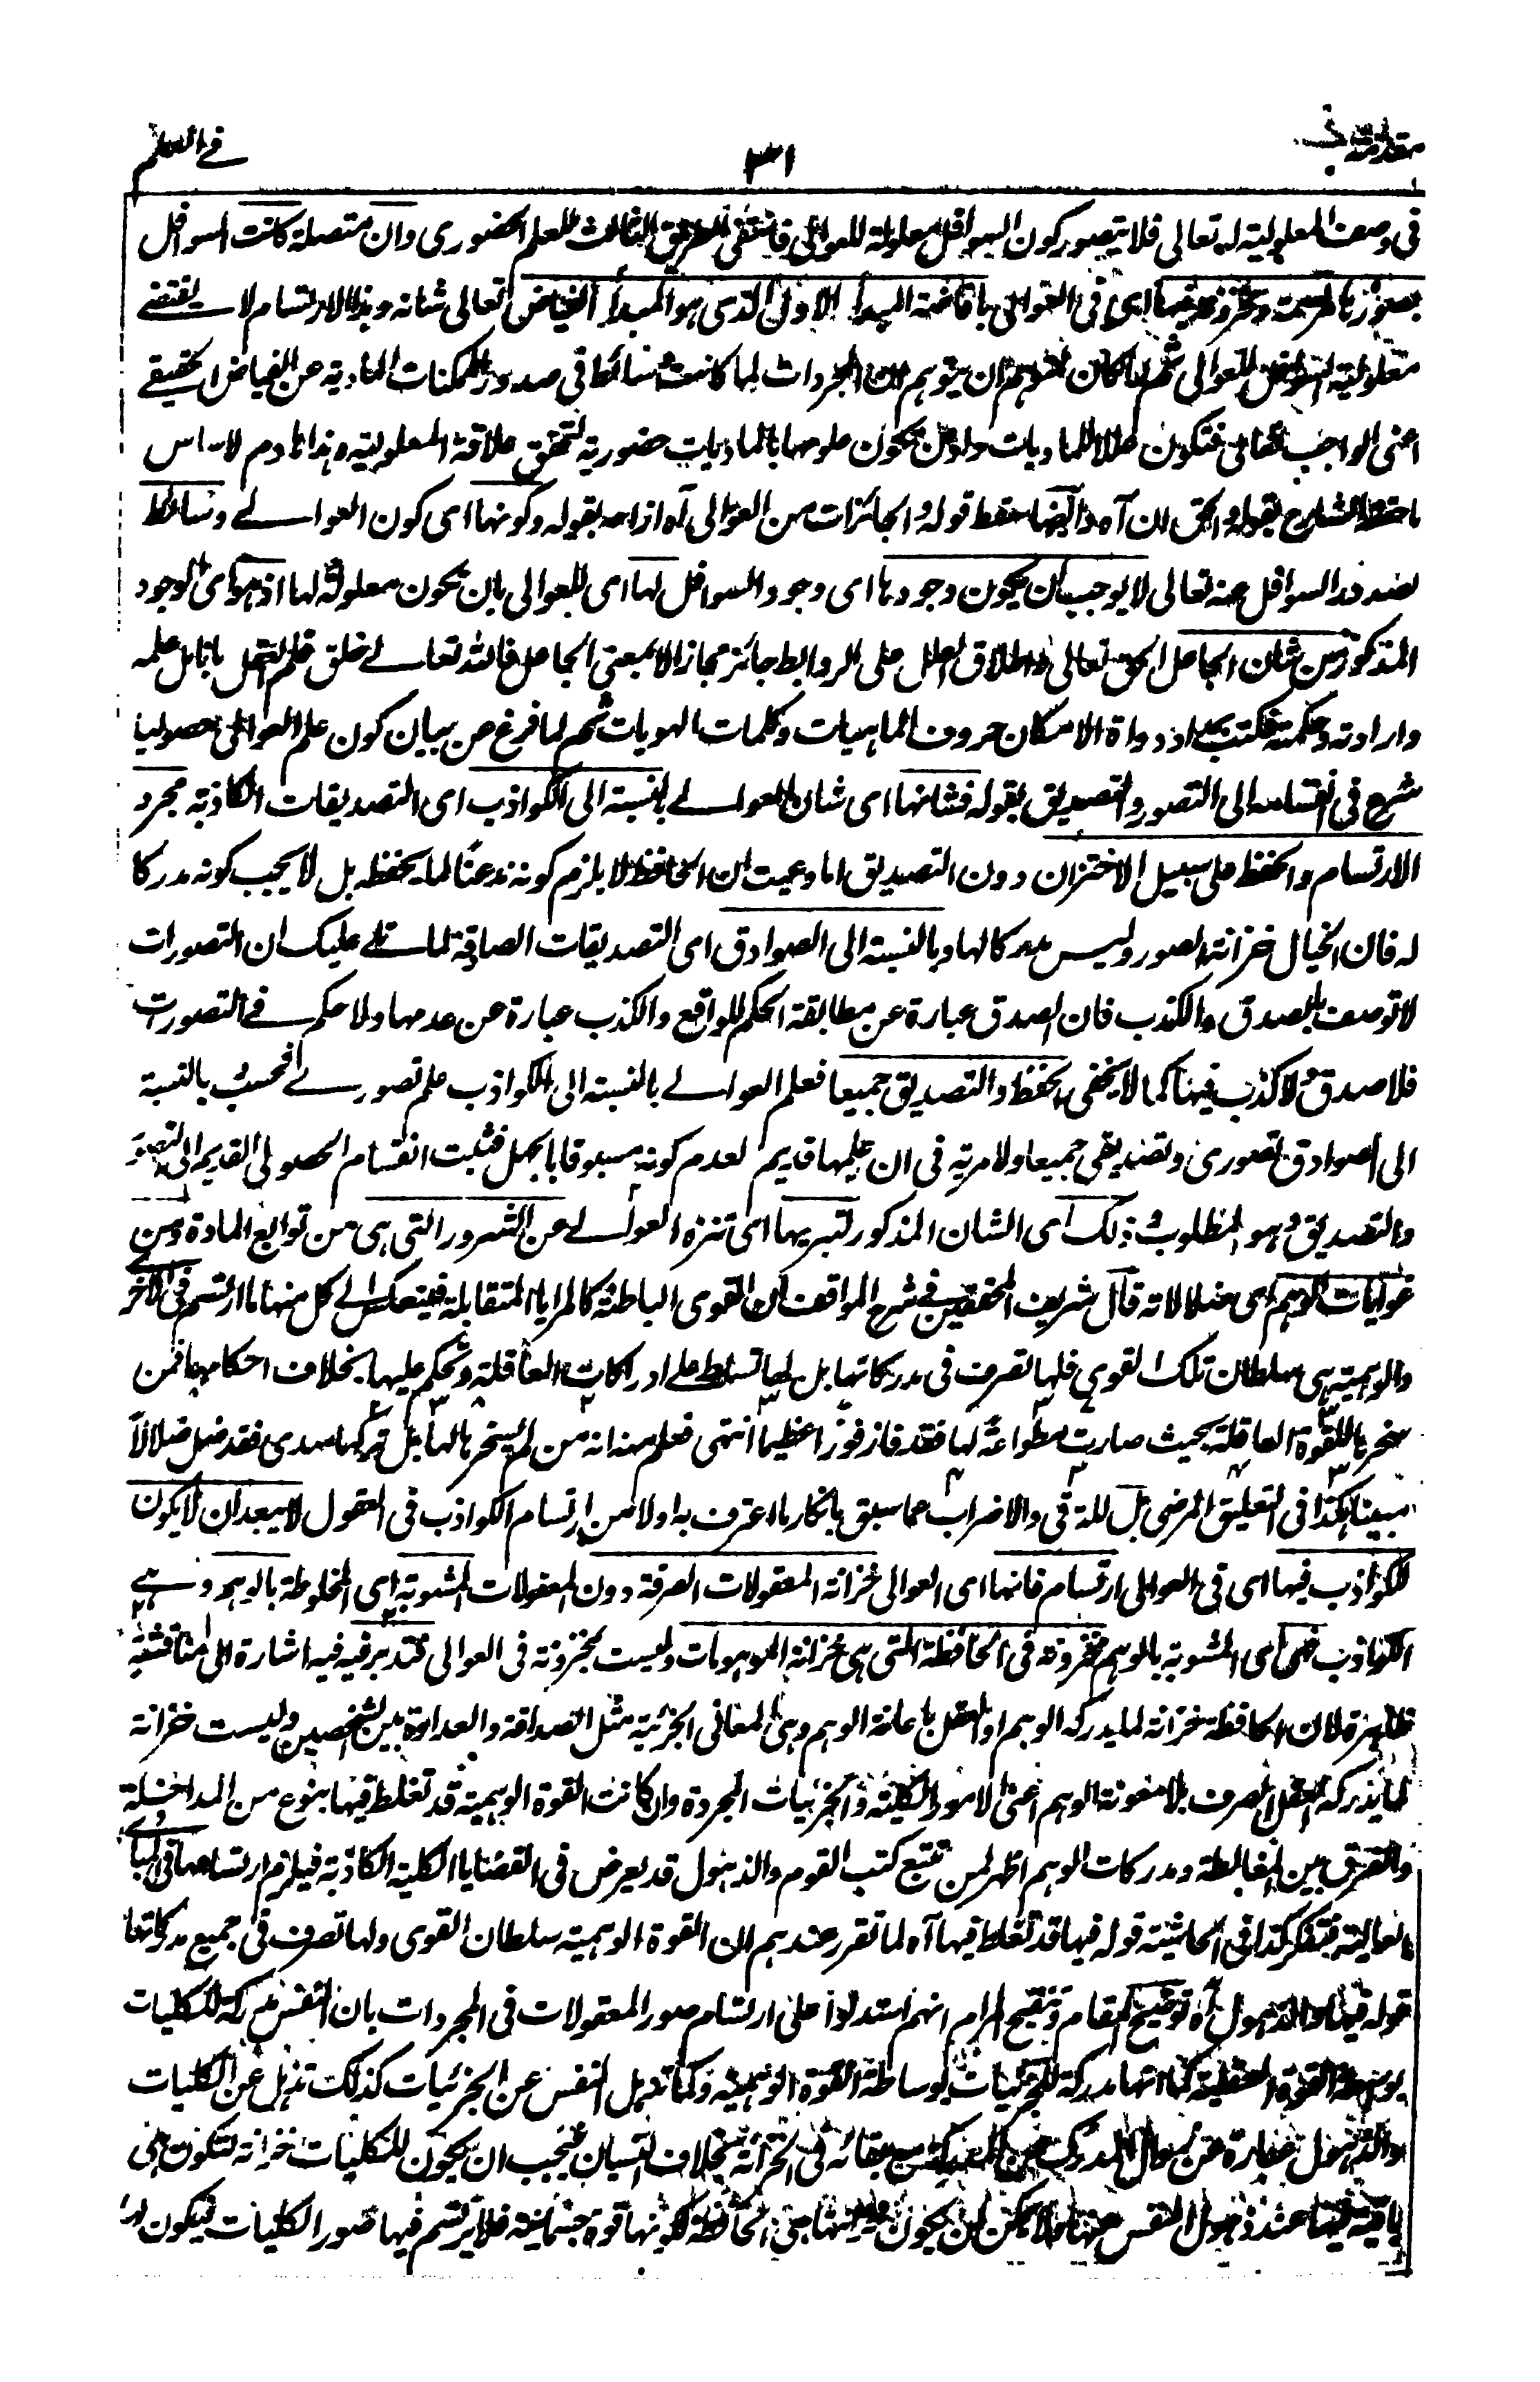 مقدمة
٣١
في العلم
في وصف المعلولية له تعالى فلا يتصور كون السوافل معلولة للعوالي فانتفى الطريق الثالث للعلم الحضوري وان متصلة كانت السوافل
بصورها مرتسمة ومخزونة فيها اى في العوالي بافاضة المبدأ الاول الذى هو المبدأ الفياض تعالى شانه وهذا الارتسام لا يقتضي
معلولية السوافل للعوالي ثم لما كان لمتوهم ان يتوهم ان المجردات لما كانت وسائط في صدور الممكنات المادية عن الفياض الحقيقي
اعنى الواجب تعالى فتكون عللا للماديات ولان يكون علومها بالماديات حضورية لتحقق علاقة المعلولية وهذا هادم لاساس
ما حققه الشارح بقوله والحق ان آه وايضا سقط قوله والجائزات من العوالي آه ازاحه بقوله وكونها اى كون العوالي وسائط
لصدور السوافل عنه تعالى لا يوجب ان يكون وجودها اى وجود السوافل لها اى للعوالي بان تكون معلولة لها اذ هو اى الوجود
المذكور من شان الجاعل الحق تعالى واطلاق العلل على الروابط جائز مجازا لا بمعنى الجاعل فالله تعالى خلق قلم العقل بانامل علمه
وارادته وحكمته فكتب بمداد دواة الامكان حروف الماهيات وكلمات الهويات ثم لما فرغ من بيان كون علم العوالي حصوليا
شرع في انقسامه الى التصور والتصديق بقوله فشانها اى شان العوالي بالنسبة الى الكواذب اى التصديقات الكاذبة مجرد
الارتسام والحفظ على سبيل الاختزان دون التصديق اما وعيت ان الحافظ لا يلزم كونه مذعنا لما يحفظه بل لا يجب كونه مدركا
له فان الخيال خزانة الصور وليس مدركا لها وبالنسبة الى الصوادق اى التصديقات الصادقة لما تلي عليك ان التصورات
لا توصف بالصدق والكذب فان الصدق عبارة عن مطابقة الحكم للواقع والكذب عبارة عن عدمها ولا حكم في التصورات
فلا صدق ولا كذب فيها كما لا يخفى الحفظ والتصديق جميعا فعلم العوالي بالنسبة الى الكواذب علم تصوري فحسب بالنسبة
الى الصوادق تصورى وتصديقى جميعا ولا مرية في ان علمها قديم لعدم كونه مسبوقا بالجهل فثبت انقسام الحصولى القديم الى التصور
والتصديق وهو المطلوب وذلك اى الشان المذكور لتبريها اى تنزه العوالي عن الشرور التى هى من توابع المادة ومن
غوايات الوهم اى ضلالاته قال شريف المحققين في شرح المواقف ان القوى الباطنة كالمرايا المتقابلة فينعكس الى كل منها ما ارتسم في الاخرى
والوهمية هى سلطان تلك القوى فلها تصرف في مدركاتها بل لها تسلط على ادراكات العاقلة وتحكم عليها بخلاف احكامها فمن
سخرها للقوة العاقلة بحيث صارت مطواعة لها فقد فاز فوزا عظيما انتهى فعلم منه انه من لم يسخرها لها بل تركها سدى فقد ضل ضلالا
مبينا هكذا في التعليق المرضى بل للترقى والاضراب عما سبق بانكار ما اعترف به اولا من ارتسام الكواذب في العقول لا يبعد ان لا يكون
للكواذب فيها اى في العوالي ارتسام فانها اى العوالي خزانة المعقولات الصرفة دون المعقولات المشوبة اى المخلوطة بالوهم وهي
الكواذب فهى اى المشوبة بالوهم مخزونة في الحافظة التى هى خزانة الموهومات وليست مخزونة في العوالى فتدبر فيه فيه اشارة الى مناقشة
ظاهرة لان الحافظة خزانة لما يدركه الوهم او العقل باعانة الوهم وهى المعانى الجزئية مثل الصداقة والعداوة بين الشخصين وليست خزانة
لما يدركه العقل الصرف بلا معونة الوهم اعنى الامور الكلية والجزئيات المجردة وان كانت القوة الوهمية قد تغلط فيها بنوع من المداخلة
والفرق بين المغالطة ومدركات الوهم اظهر لمن تتبع كتب القوم والذهول قد يعرض في القضايا الكلية الكاذبة فيلزم ارتسامها في المبادي
العالية فتفكر كذا في الحاشية قوله فيها قد تغلط فيها آه لما تقرر عندهم ان القوة الوهمية سلطان القوى ولها تصرف في جميع مدركاتها
قوله فيها والذهول آه توضيح المقام وتنقيح المرام انهم استدلوا على ارتسام صور المعقولات في المجردات بان النفس مدركة للكليات
بوساطة القوة العقلية كما انها مدركة للجزئيات بوساطة القوة الوهمية وكما تذهل النفس عن الجزئيات كذلك تذهل عن الكليات
والذهول عبارة عن زوال المدرك عن المدرك مع بقائه في الخزانة بخلاف النسيان فيجب ان يكون للكليات خزانة لتكون هى
باقية فيها عند ذهول النفس عنها ولا يمكن ان يكون خزانتها هى الحافظة لكونها قوة جسمانية فلا يرتسم فيها صور الكليات فيكون